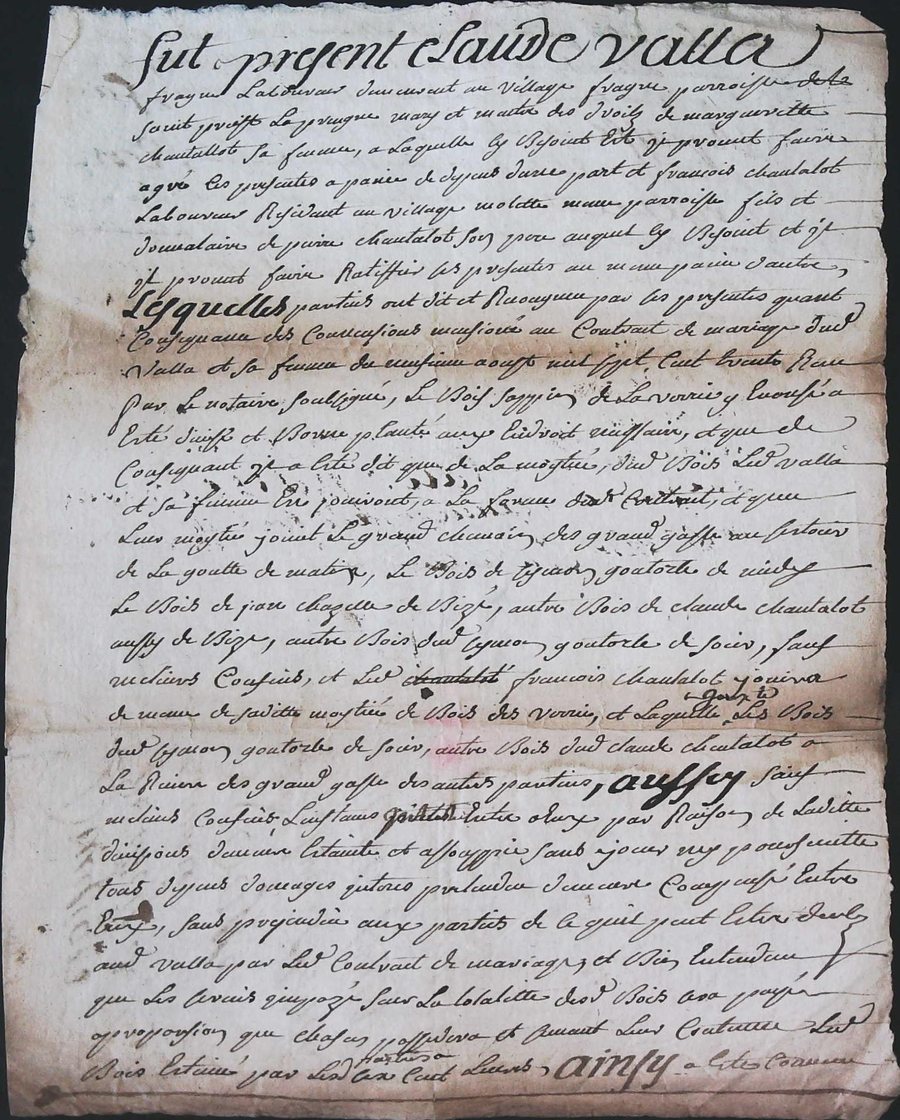 fut present Claude Valla
fragne Laboureur demeurant au village fragne parroisse de la
saint priest La prugne mary et maitre des droits de margueritte
chantallot sa femme, a Laquelle et promet faire
agréé les presentes a peine de depens d'une part et francois chantalot
Laboureur Residant au village molette meme parroisse fils et
donnataire de pierre chantalot son pere auquel et
promet faire Ratiffier les presentes au meme peine d'autre,
Lesquelles parties ont dit et Reconnu par les presentes quant
Consequance des Convensions au Contrat de mariage dud
valla et sa femme du aoust mil sept Cent trente
par Le notaire soussigné, Le Bois sappin de La verrie y enoncé a
Eté divisé et Borne planté aux Endroit
Consequant il a Eté dit que de La moytié, dud Bois Led valla
et sa femme En jouiront, a La forme dud Contrat, et que
Leur moytié joint Le grand chemain des grand gasse au
de La goutte de matin, Le Bois de symon goutorbe de midy
Le Bois de jean chazelle de Bize, autre Bois de claude chantalot
aussy de Bize, autre Bois dud symon goutorbe de soir, sauf
meliurs Confins, et Led francois chantalot jouira
de meme de saditte moytiée de Bois des verrie, et Laquelle joint Les Bois
dud symon goutorbe de soir, autre Bois dud claude chantalot a
La des grand gasse des autres parties, aussy sauf
meliurs Confins Entre Eux par Raison de Laditte
division demeure Etainte et assoppie sans
tous depens domages pretendu demeure Compensé Entre
Eux, sans prejudice aux parties de ce quil peut Estre deub
aud valla par Led Contrat de mariage, et Bien Entendu
que Les sur La totalitté desd Bois sera payé
aproporsion que chasqun possedera et Led
Bois Estimé par Lesd parties a Cent Livres, ainsy a Eté Convenu